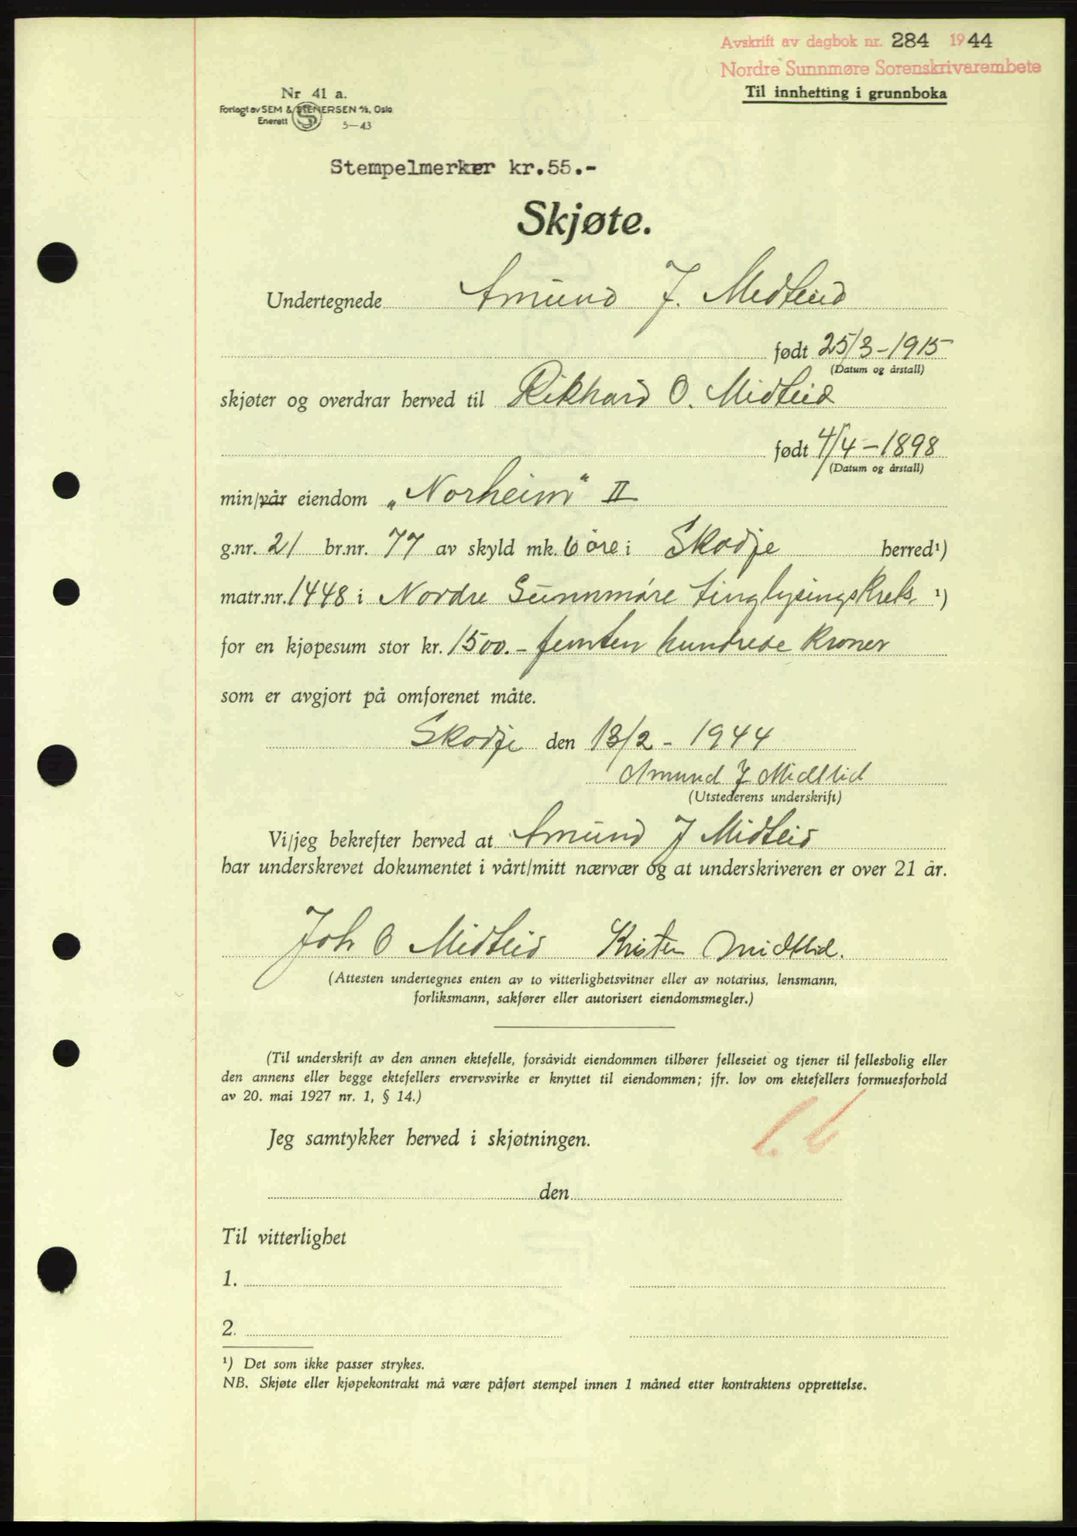 Avskrift av dagbok nr. 284 1944
Nordre Sunnmøre Sorenskrivarembete
Til innhefting i grunnboka
Nr 41 a.
Forlagt av SEM & STENERSEN A/S, Oslo
Enerett 5-43
Stempelmerker kr.55.-
Skjøte.
Undertegnede Amund J. Midtlid
født 25/3-1915
(Datum og årstall)
skjøter og overdrar herved til Rikhard O. Midtlid
født 4/4-1898
(Datum og årstall)
min/vår eiendom "Norheim" II
g.nr. 21 br.nr. 77 av skyld mk. 6 øre i Skodje herred¹)
matr.nr. 1448 i Nordre Sunnmøre tinglysingskrets ¹)
for en kjøpesum stor kr. 1500.- femten hundrede kroner
som er avgjort på omforenet måte.
Skodje den 13/2-1944
Amund J Midtlid
(Utstederens underskrift)
Vi/jeg bekrefter herved at Amund J Midtlid
har underskrevet dokumentet i vårt/mitt nærvær og at underskriveren er over 21 år.
Joh O Midtlid Kristen Midtlid.
(Attesten undertegnes enten av to vitterlighetsvitner eller av notarius, lensmann,
forliksmann, sakfører eller autorisert eiendomsmegler.)
(Til underskrift av den annen ektefelle, forsåvidt eiendommen tilhører felleseiet og tjener til fellesbolig eller
den annens eller begge ektefellers ervervsvirke er knyttet til eiendommen; jfr. lov om ektefellers formuesforhold
av 20. mai 1927 nr. 1, § 14.)
Jeg samtykker herved i skjøtningen.
den
Til vitterlighet
1.
2.
¹) Det som ikke passer strykes.
NB. Skjøte eller kjøpekontrakt må være påført stempel innen 1 måned etter kontraktens opprettelse.